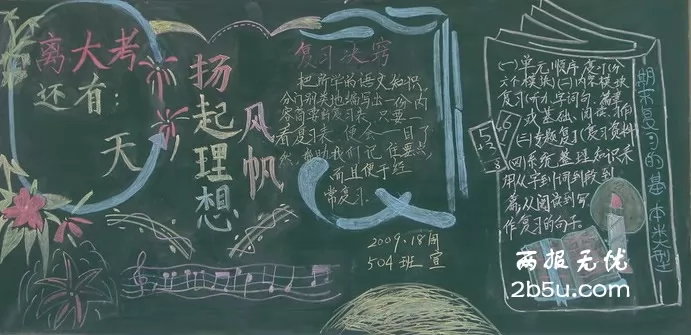 离大考
还有:
天
扬起理想
风帆
复习决窍
把所学的语文知识,
分门别类地编写出一份内
容简要的复习表,只要一
看复习表,便会一目了
然,帮助我们记住要点,
而且便于经
常复习.
2009.18周
504班 宣
(一)单元顺序复习(分
六个模块)(二)内容模块
复习(分为字词句、篇章
或基础、阅读、习作
(三)专题复习(复习资料
(四)系统整理知识来
用从字到词到段到
篇从阅读到写
作复习的句子。
期末复习的基本类型
两报无忧
2b5u.com